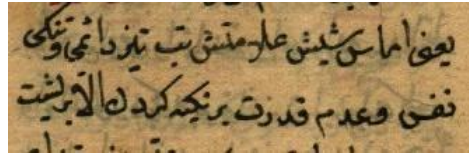 یعنی اماس شیش علامتش تب تیز دائمی و تنکی
نفس و عدم قدرت بر تکیه کردن الا بر پشت